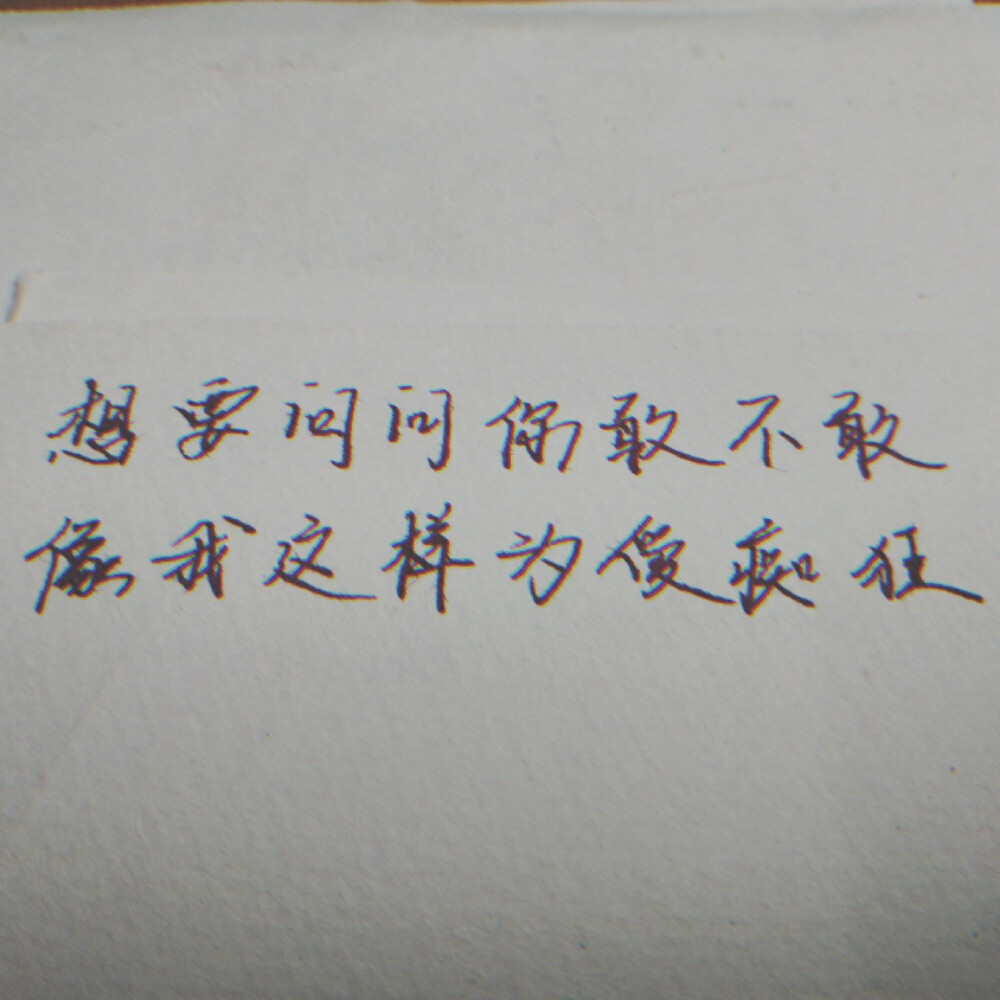 想要问问你敢不敢
像我这样为爱痴狂